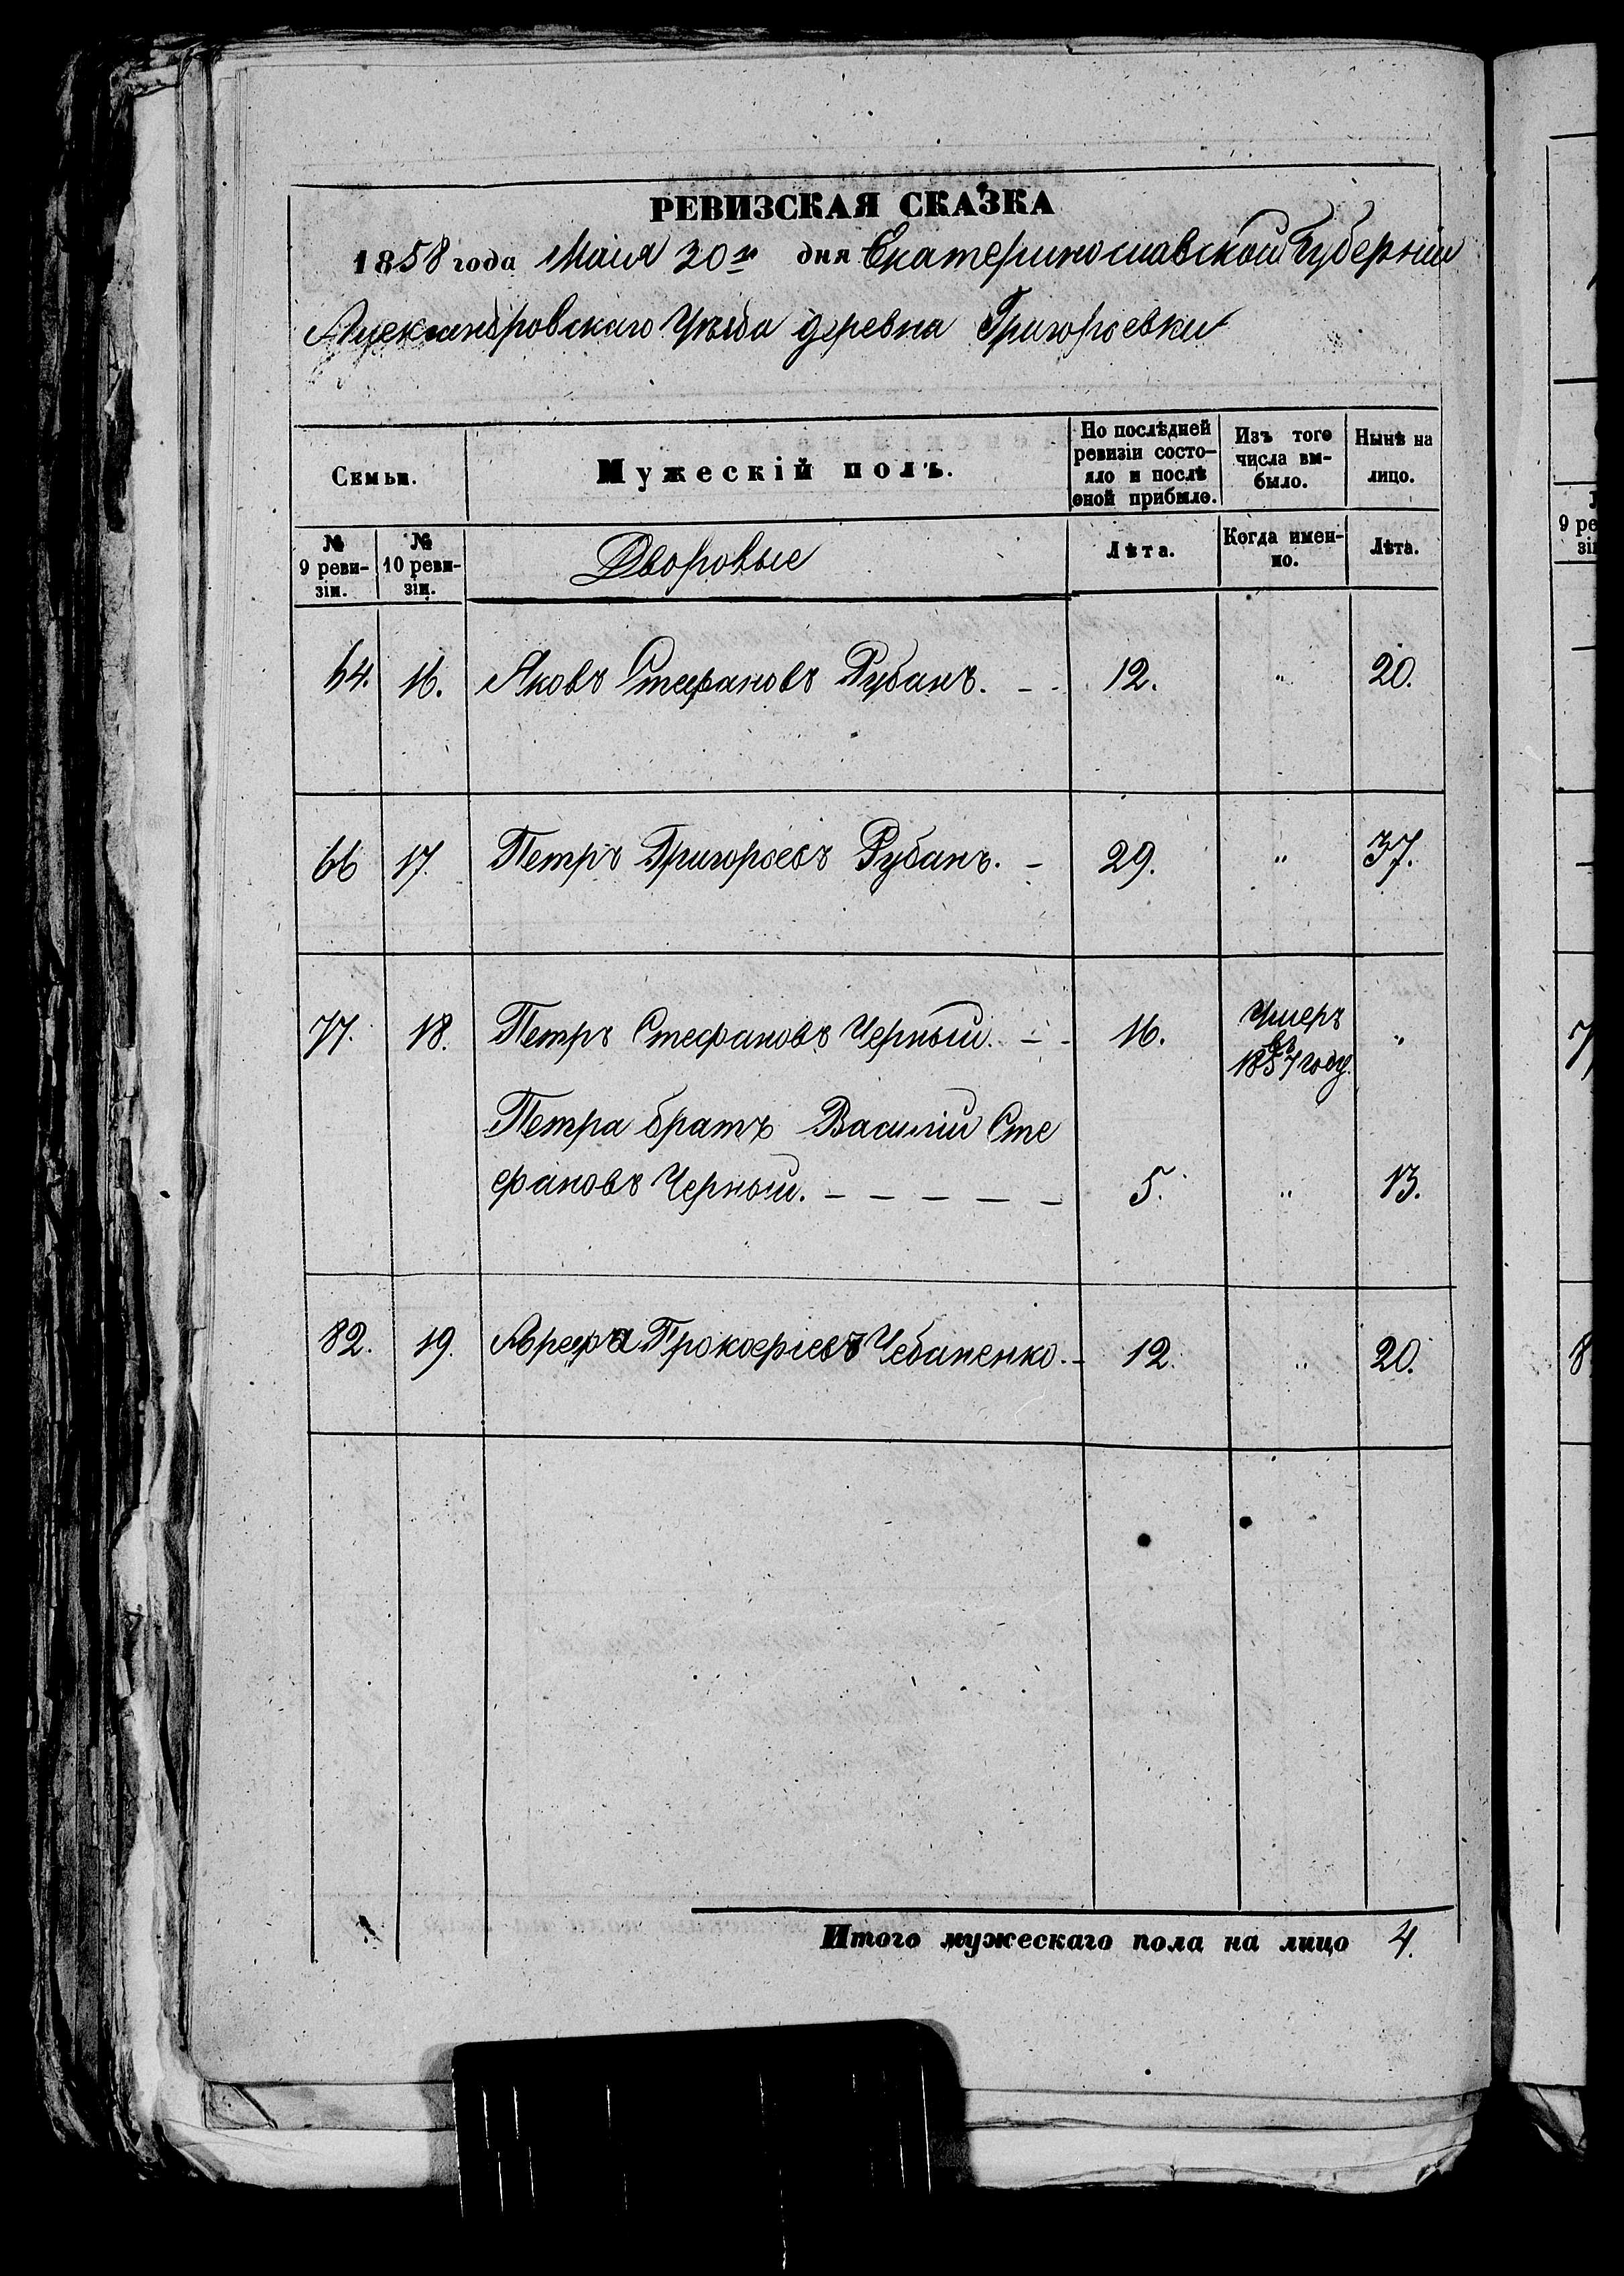 РЕВИЗСКАЯ СКАЗКА
1858 года Маія 20го дня Екатеринославской Губерніи
Александровскаго Уѣзда деревна Григорьевки
Семьи. Мужескій полъ. По послѣдней ревизіи состояло и послѣ оной прибыло. Изъ того числа выбыло. Нынѣ на лицо.
№ 9 ревизіи. № 10 ревизіи. Дворовые Лѣта. Когда именно. Лѣта.
64. 16. Яковъ Стефановъ Рубанъ. - - 12. " 20.
66 17. Петръ Григорьевъ Рубанъ. - 29. " 37.
77. 18. Петръ Стефановъ Черный. - - 16. Умеръ въ 1857 году. "
Петра братъ Василій Сте
фановъ Черный. - - - - - 5. " 13.
82. 19. Арефа Прокофіевъ Чебаненко. - 12. " 20.
Итого мужескаго пола на лицо 4.
9 ре
зі
7
8